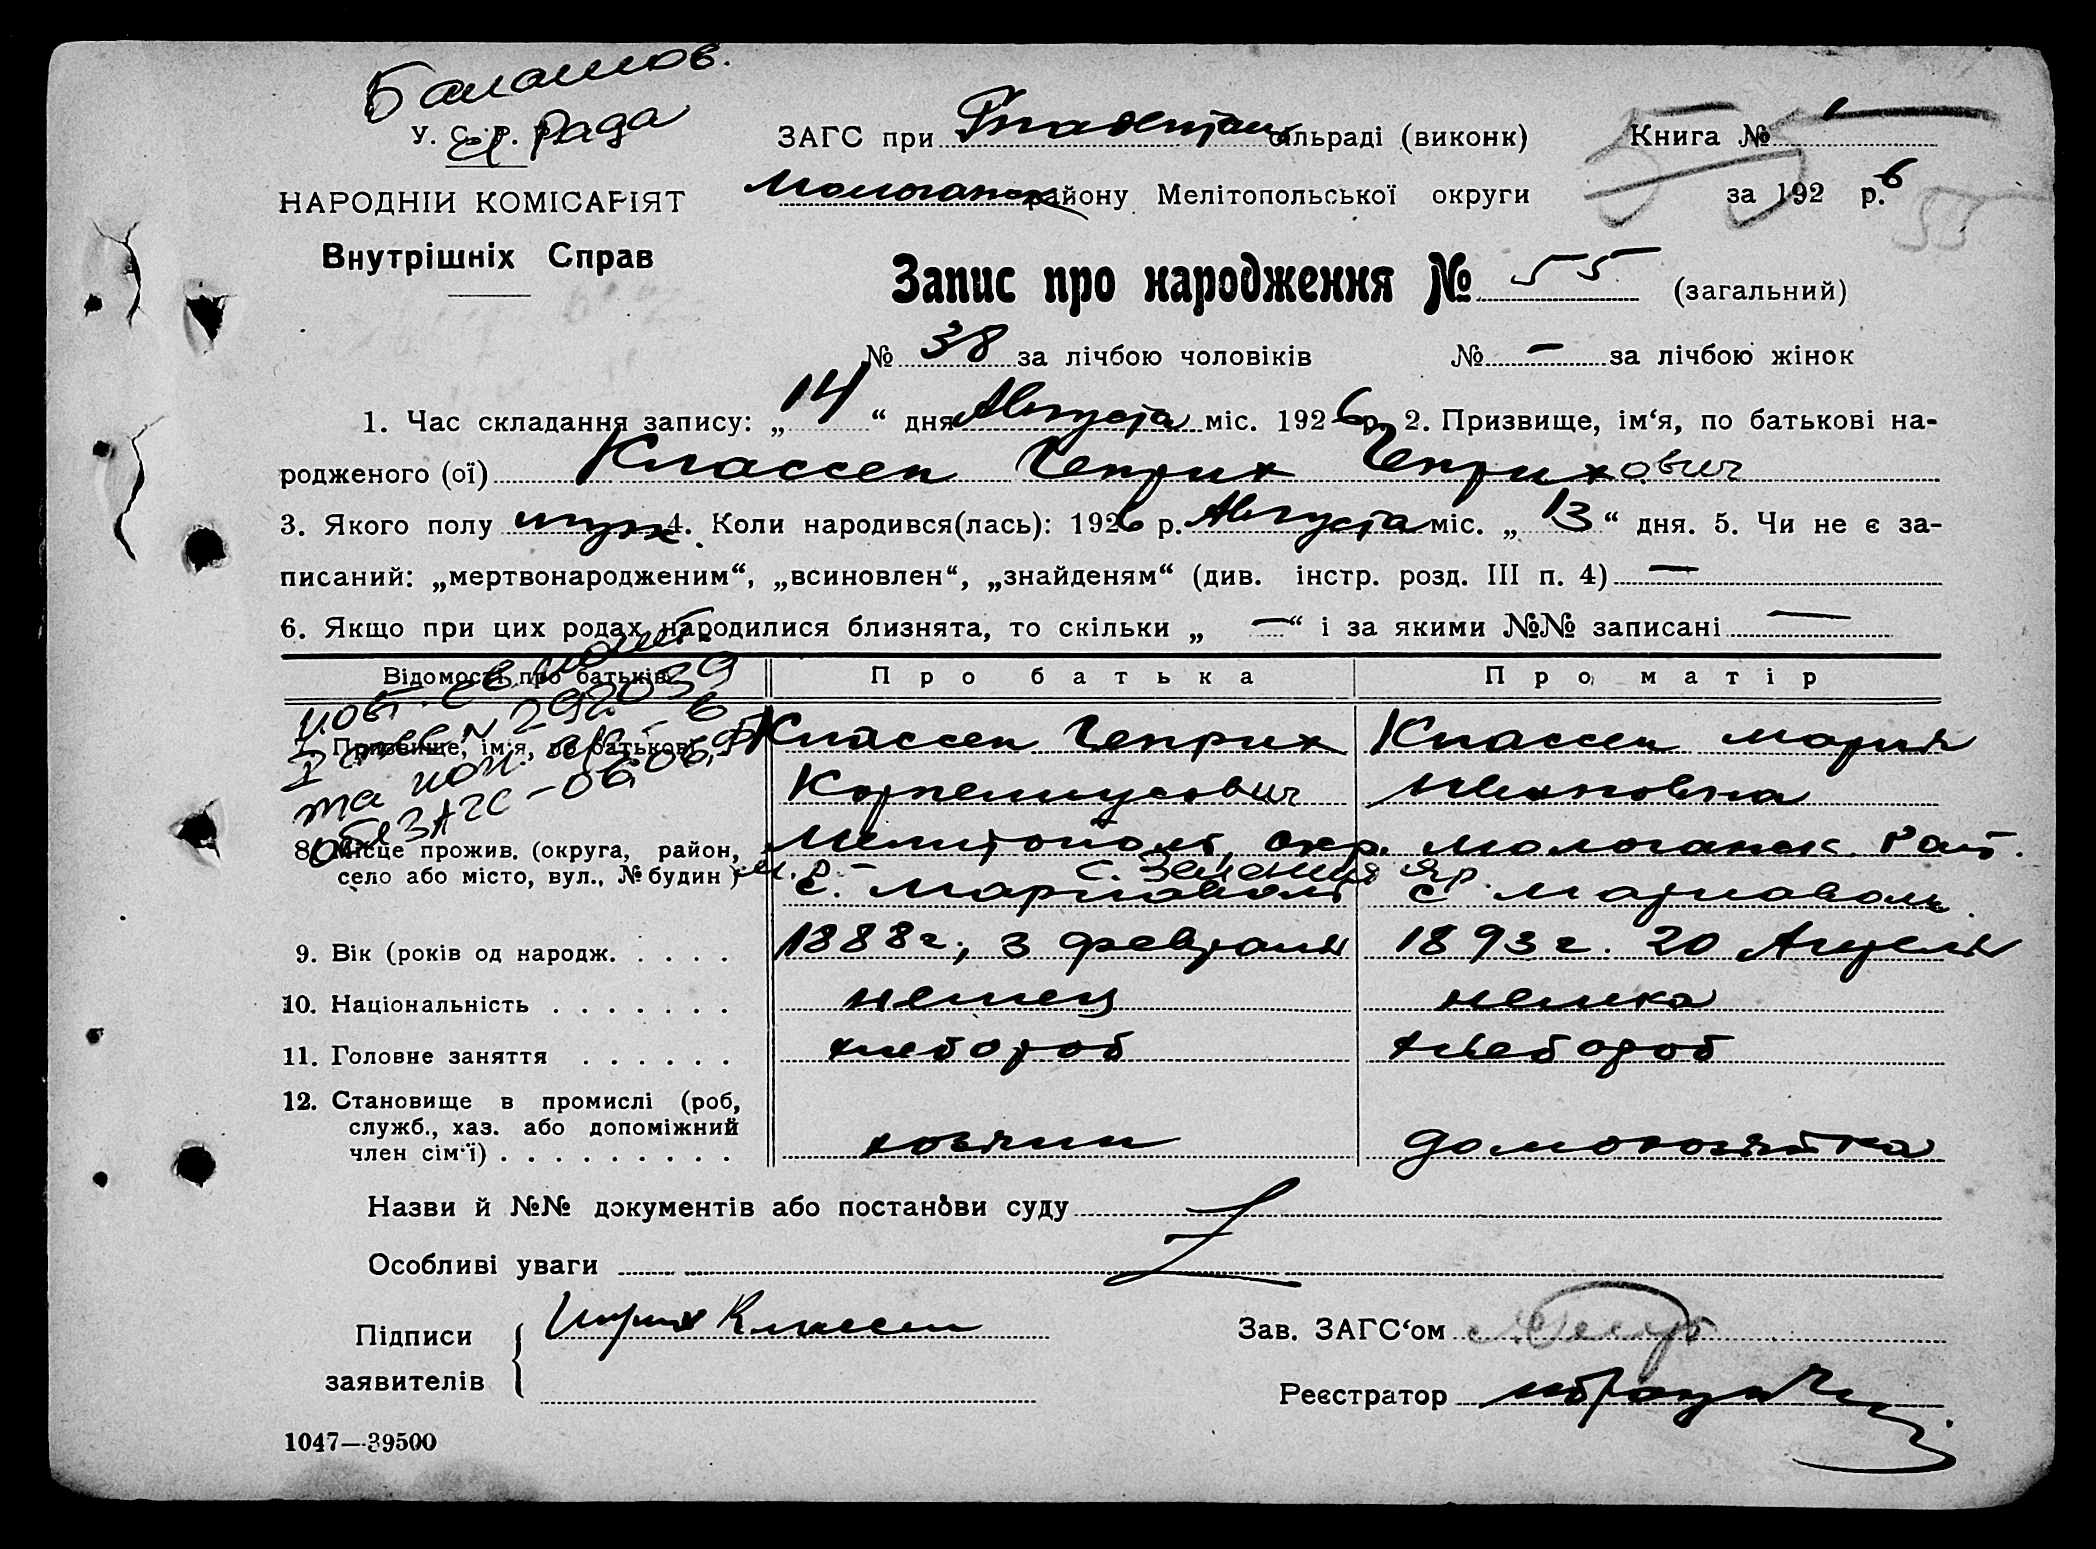 Балашов.
с/рада
У. С. Р. Р.
НАРОДНІИ КОМІСАРІЯТ
Внутрішніх Справ
ЗАГС при сільраді (виконк)
Молочанск району Мелітопольської округи
Книга № 1
за 1926 р.
55
55
Запис про народження № 55 (загальний)
№ 38 за лічбою чоловіків № — за лічбою жінок
1. Час складання запису: „14“ дня Августа міс. 1926 р. 2. Призвище, ім‘я, по батькові на-
родженого (ої) Классен Генрих Генрихович
3. Якого полу муж. 4. Коли народився(лась): 1926 р. Августа міс. „13“ дня. 5. Чи не є за-
писаний: „мертвонародженим“, „всиновлен“, „знайденям“ (див. інстр. розд. III п. 4) —
6. Якщо при цих родах народилися близнята, то скільки „—“ і за якими №№ записані —
Відомості про батьків Про батька Про матір
№ 292039
ЗАГС
7. Призвище, ім‘я, по батькові Классен Генрих Классен Мария
Корнелиусович Ивановна
8. Місце прожив. (округа, район, Мелитополь. окр. Молочанск. Рай.
село або місто, вул., № будин) с. Зеленый Яр.
с. Мариаволь с Мариаволь.
9. Вік (років од народж. . . . . 1888 г., 3 февраля 1893 г. 20 Апреля
10. Національність . . . . . . . немец немка
11. Головне заняття . . . . . . хлебороб хлебороб
12. Становище в промислі (роб,
служб., хаз. або допоміжний
член сім‘ї) . . . . . . . . . хозяин домохозяйка
Назви й №№ документів або постанови суду
Особливі уваги
Підписи
заявителів
Классен
Зав. ЗАГС‘ом
Реєстратор
1047—39500